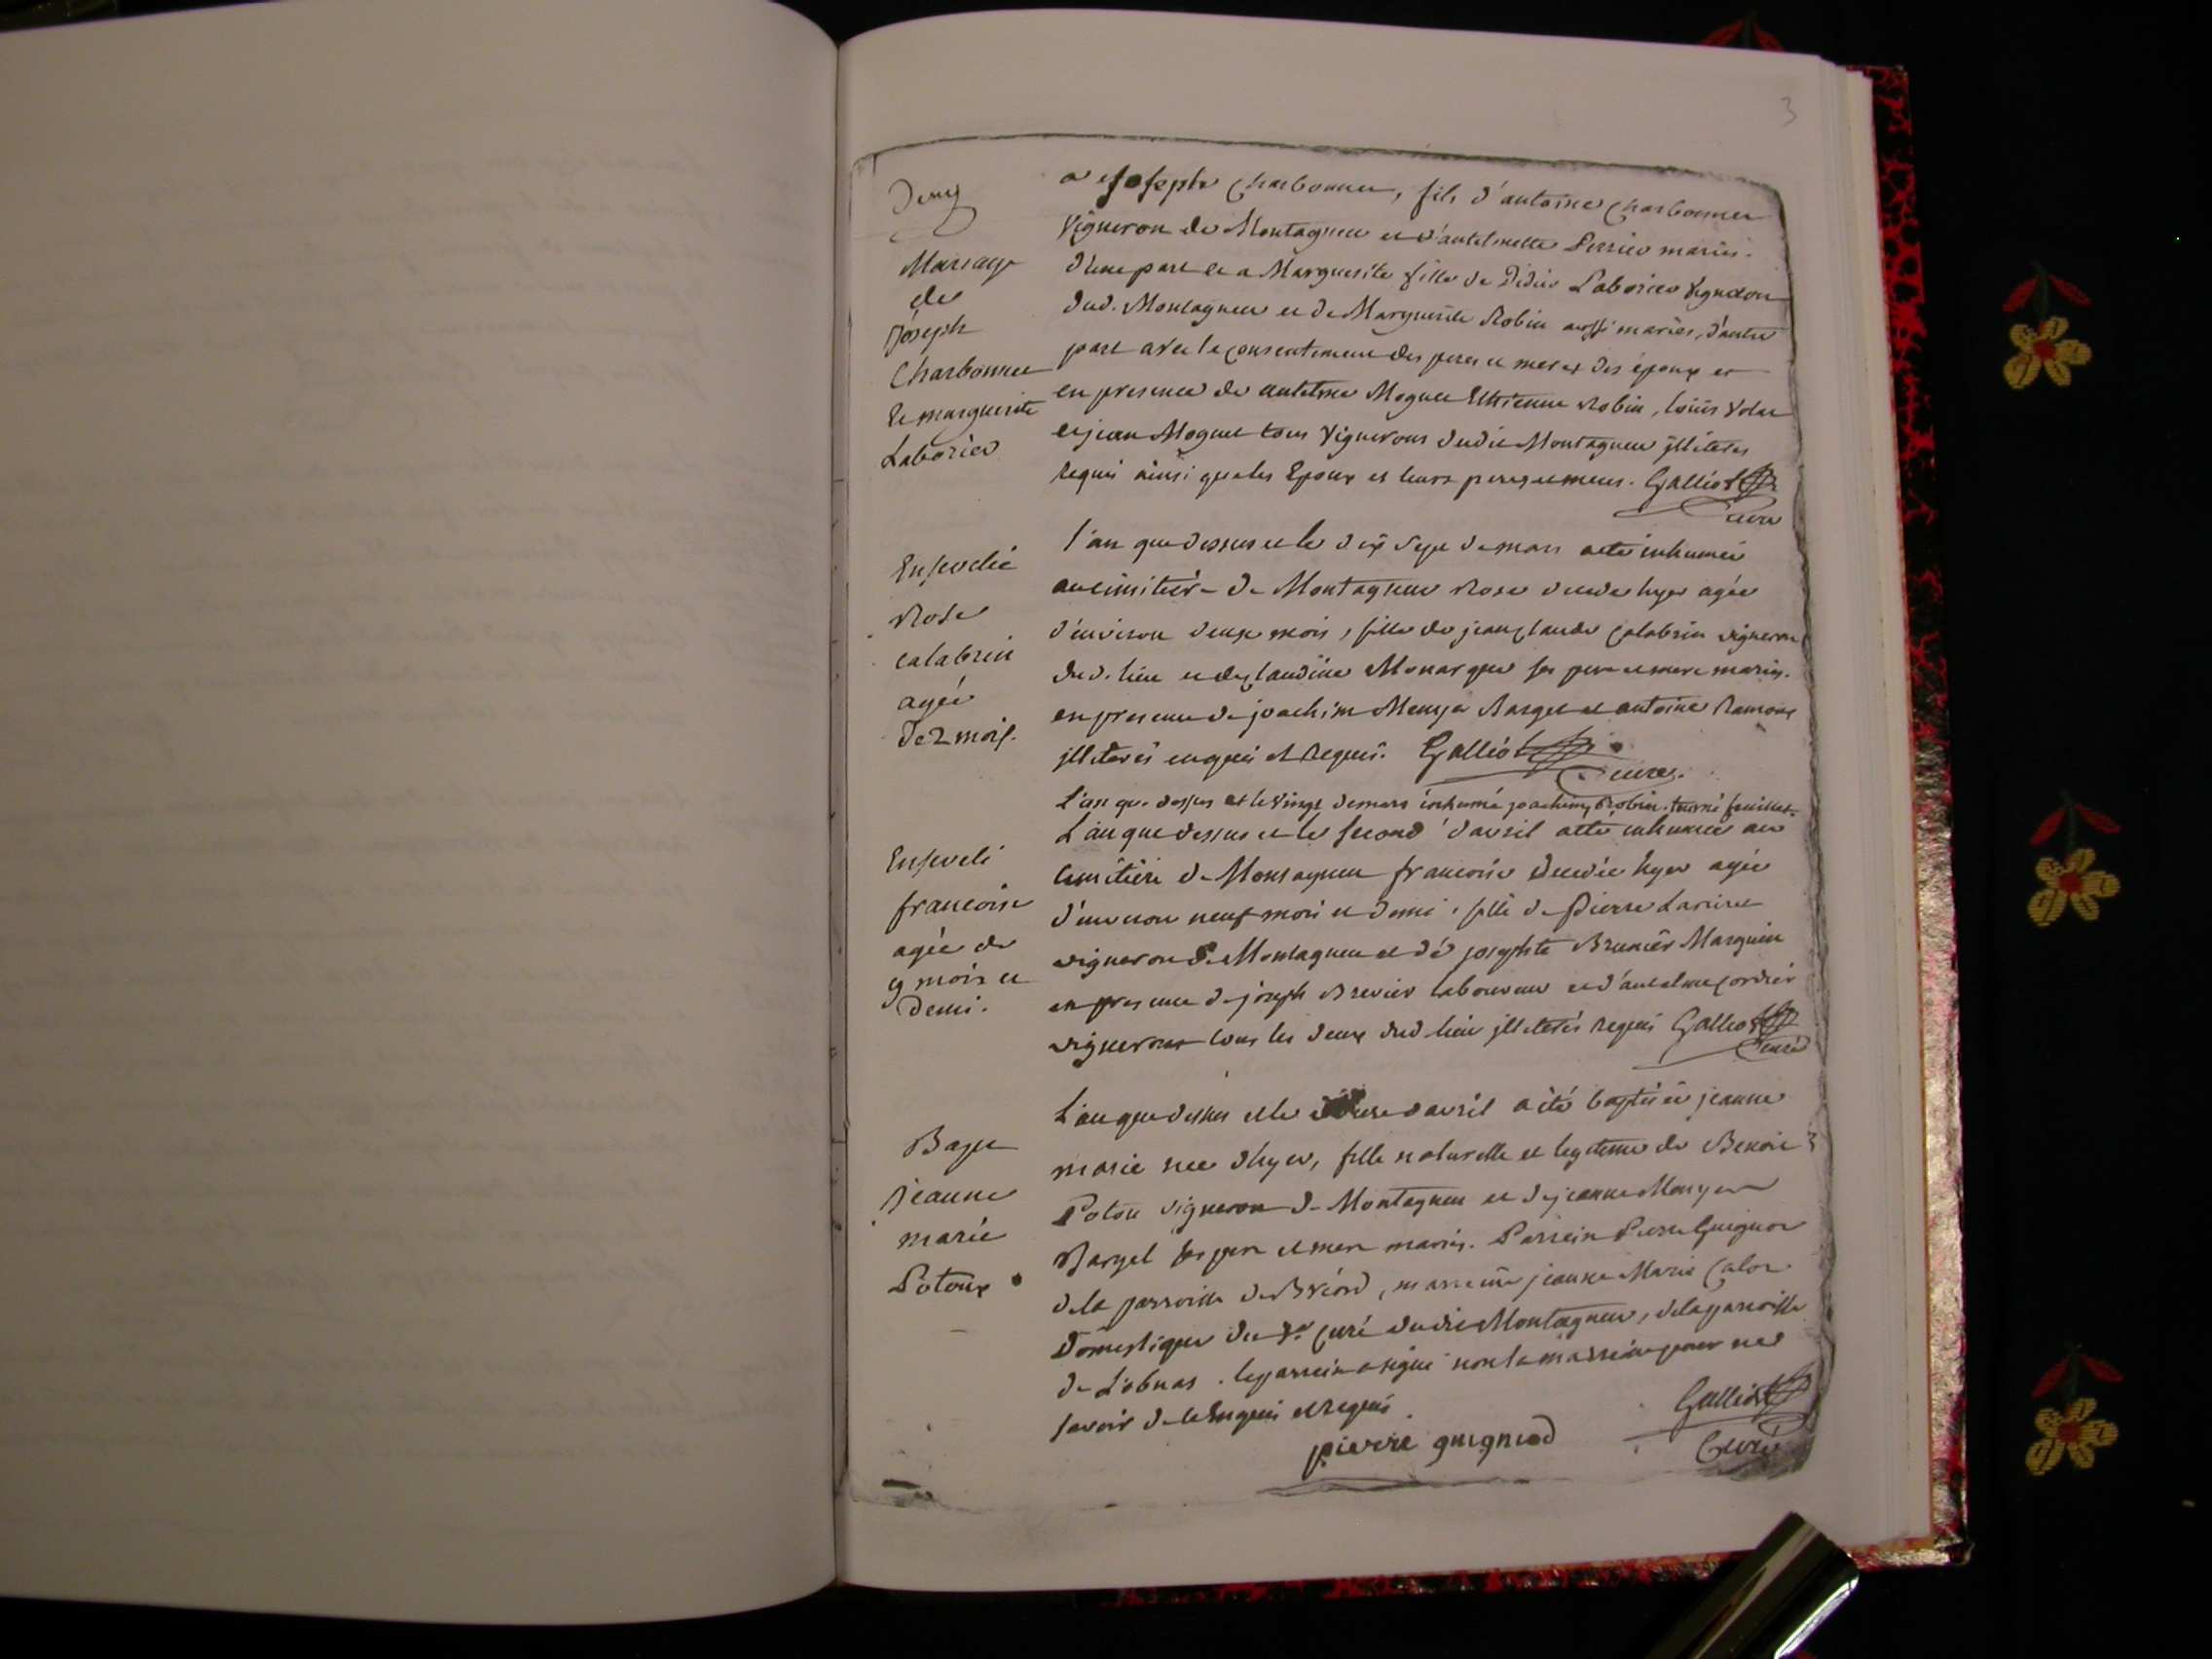 3
Deux
Mariage
de
Joseph
Charbonnet
et marguerite
Laborier
a Joseph Charbonnet, fils d'antoine Charbonnet
Vigneron de Montagneu et d'antelmette Perrier mariés.
d'une part et a Marguerite fille de Didier Laborier Vigneron
dud. Montagneu et de Marguerite Robin aussi mariés, d'autre
part avec le consentement des peres et meres des époux et
en presence de antelme Mognet Ethienne Robin, loüis
et jean Mognet tous Vignerons dudit Montagneu jlliterés
requis ainsi que les Epoux et leurs peres et meres. Galliot
Curé
Enseveli
Rose
calabrin
agée
de 2 mois.
l'an que dessus et le dix sept de mars a eté inhumée
au cimitiére de Montagneu Rose decedée hyer agée
d'environ deux mois, fille de jean claude calabrin vigneron
dud. lieu et de claudine Monarque ses pere et mere mariés.
en presence de joachim Meunja Barget et antoine Ramoux
jlliterés enquis et Requis. Galliot
Curé.
L'an que dessus et le vingt de mars inhumé joachim Robin. tourné feuillet.
Enseveli
francoise
agée de
9 mois et
demi.
L'an que dessus et le second d'avril a eté inhumée au
cimitiére de Montagneu francoise decedée hyer agée
d'environ neuf mois et demi, fille de Pierre
vigneron de Montagneu et de josephte Brunier Marguin
en presence de joseph Brevier laboureur et d'antelme cordier
vignerons tous les deux dud lieu jlliterés requis Galliot
Curé
Bapt
jeanne
marie
Potoux
L'an que dessus et le d'avril a été baptisée jeanne
marie née d'hyer, fille naturelle et legitime de Benoit
Potou vigneron de Montagneu et de jeanne Meunja
Barget ses pere et mere mariés. Parrein Pierre Guignod
de la parroisse de Briord, marreine jeanne Marie Calor
Domestique du Sr. Curé dudit Montagneu, de la parroisse
de L'obnas. le parrein a signé non la marreine pour ne
savoir de ce Enquis et Requis
pierre guignod
Galliot
Curé